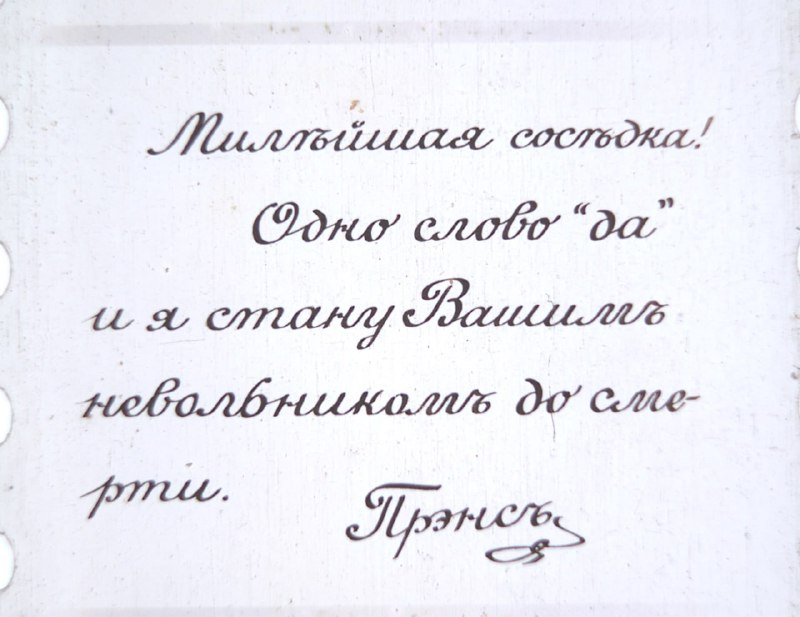 Милѣйшая сосѣдка!
Одно слово “да”
и я стану Вашимъ
невольникомъ до сме-
рти.
Прэнсъ